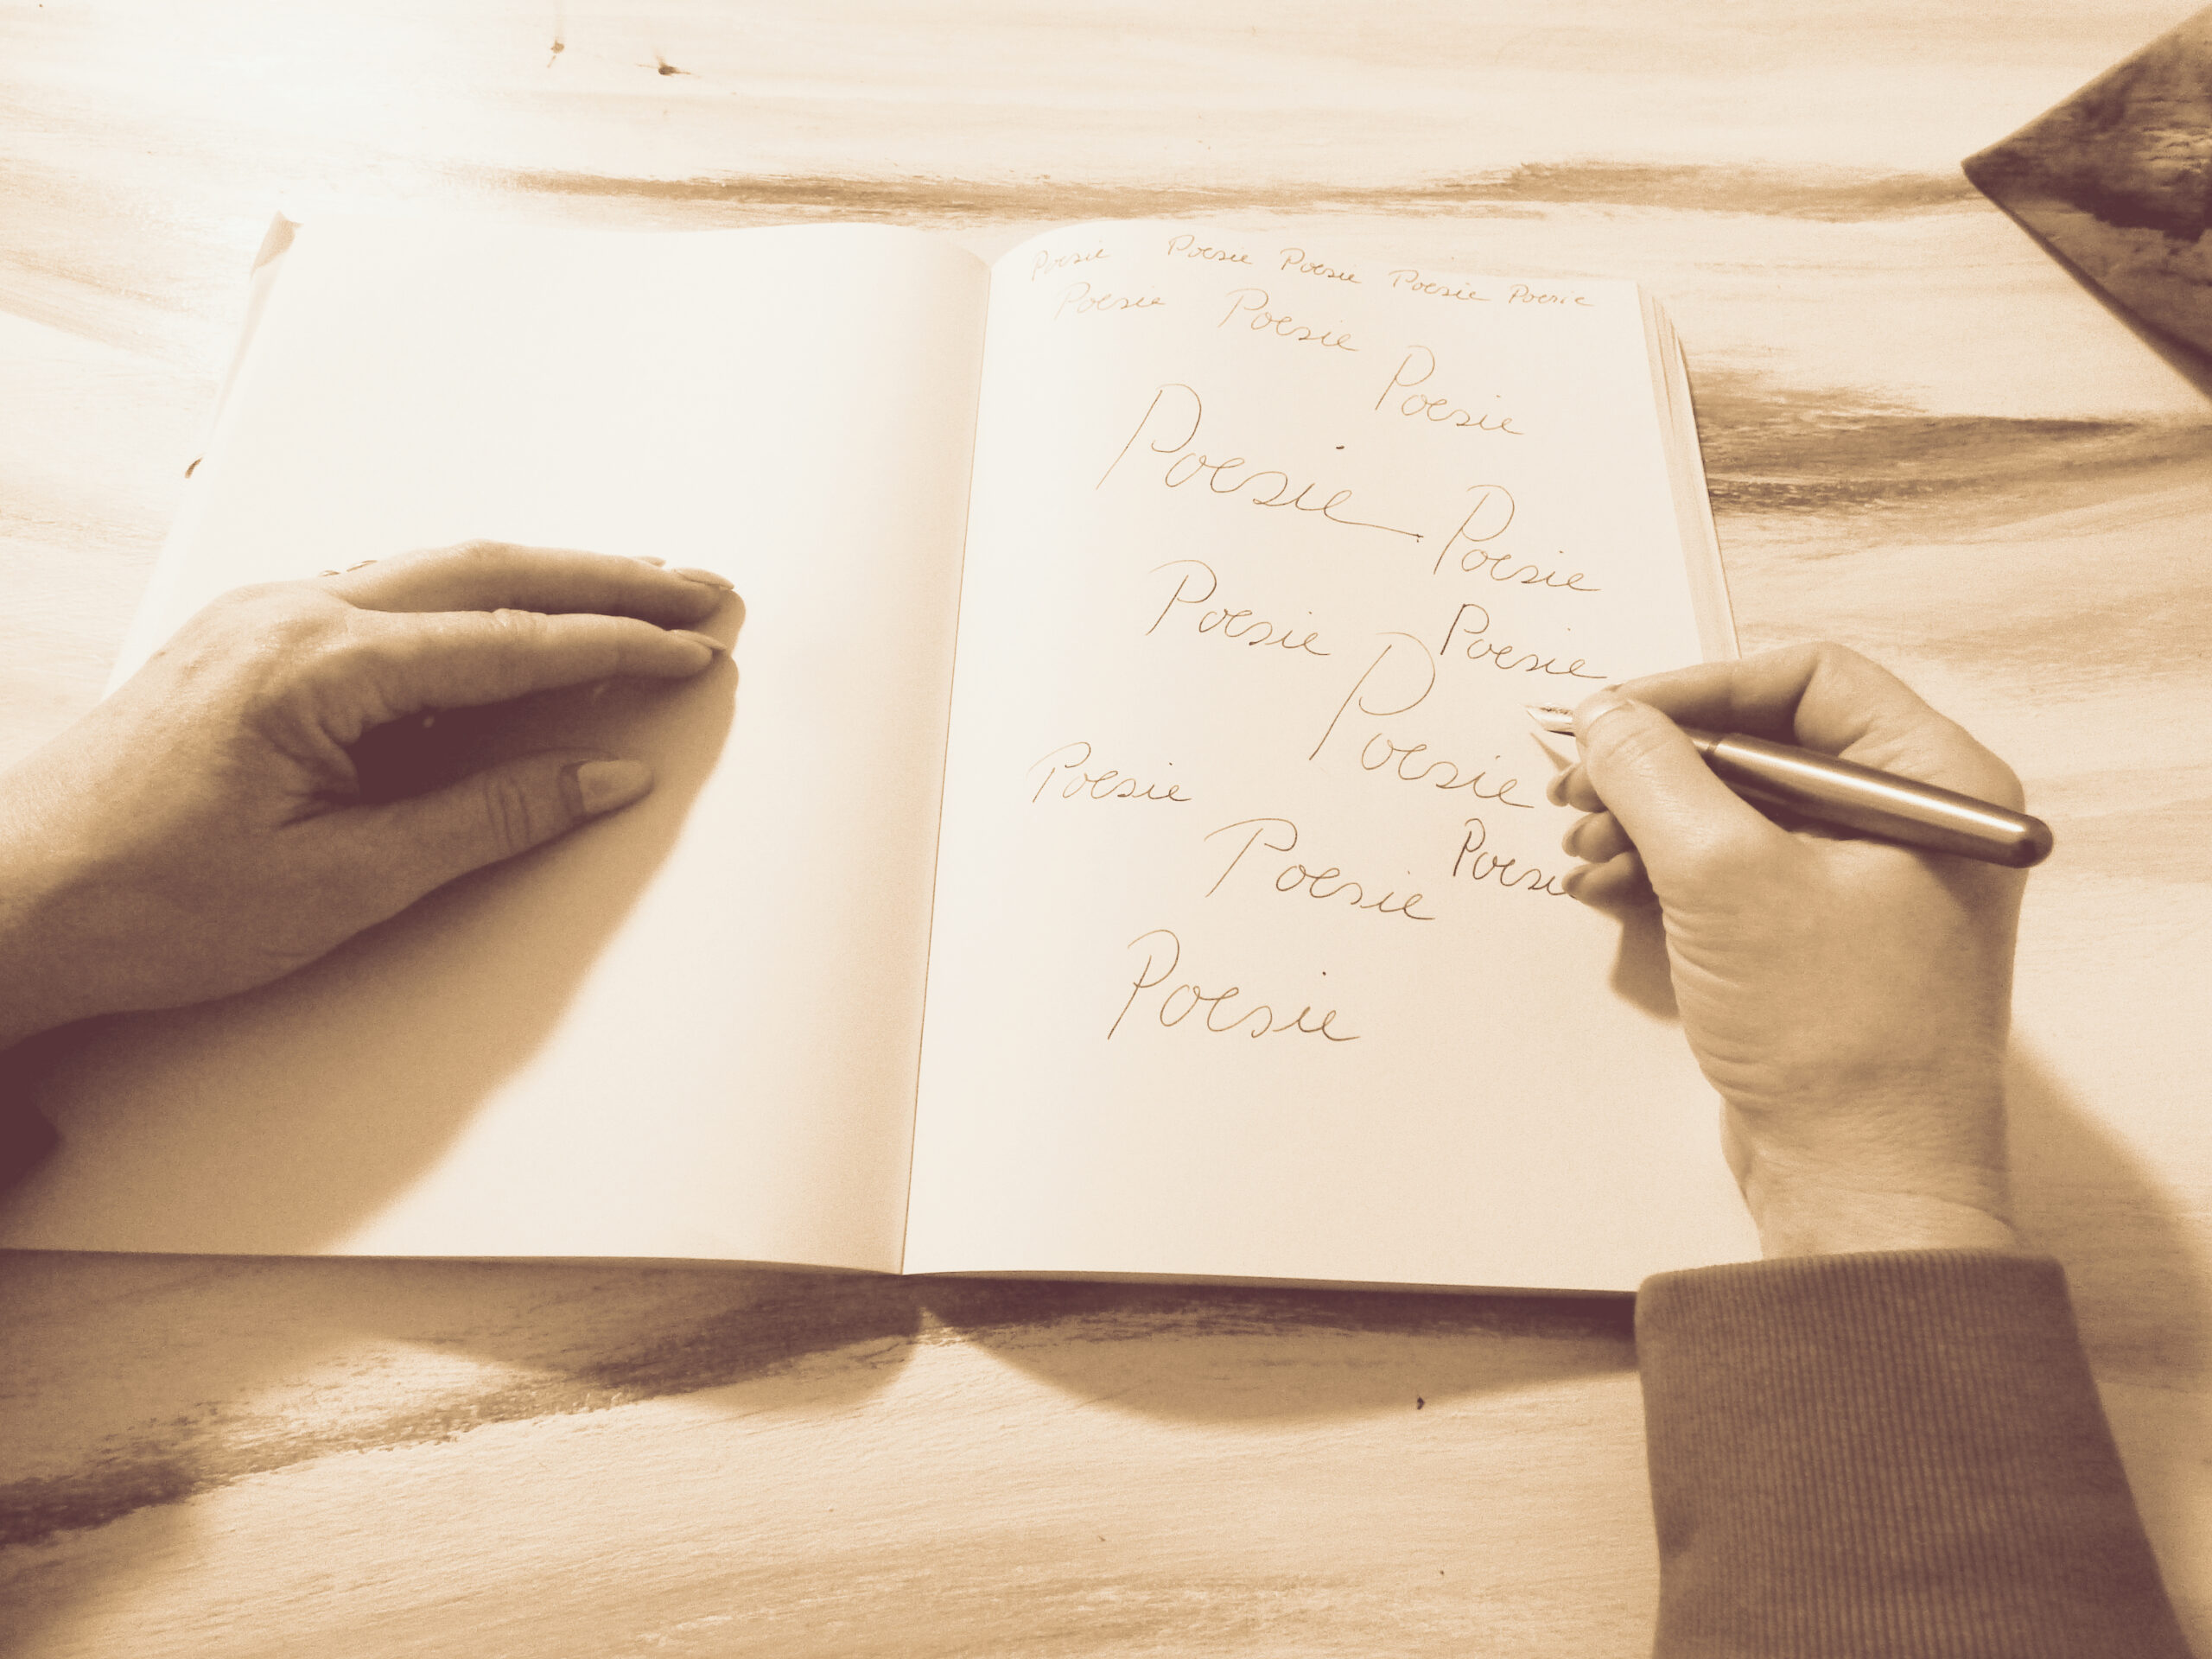 Poesie Poesie Poesie Poesie Poesie
Poesie Poesie
Poesie
Poesie
Poesie
Poesie Poesie
Poesie
Poesie
Poesie Poesie
Poesie